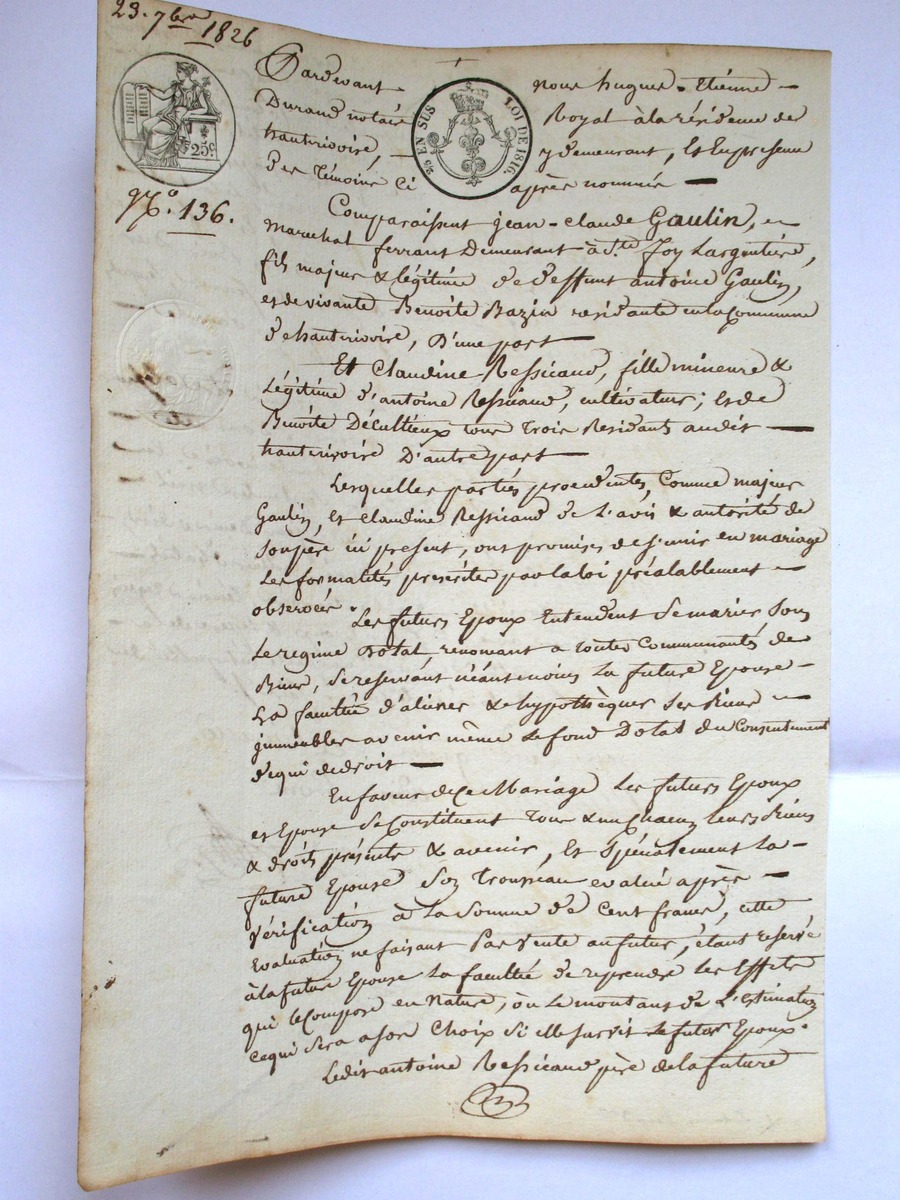 23. 7bre 1826
25c
2/5 EN SUS LOI DE 1816.
No. 136.
Pardevant nous hugues-Etiénne
Durand notaire Royal à la résidence de
hauterivoire, y demeurant, Et En presence
Des Témoins Ci après nommés
Comparaissent jean-claude Gaulin,
Marechal ferrant Demeurant à Ste. foy Largentiére,
fils majeur & légitime de deffunt antoine Gaulin,
et de vivante Benoite Bazin residante en la Commune
De hauterivoire, D'une part
Et Claudine Ressicaud, fille mineure &
Légitime d'antoine Ressicaud, cultivateur; et de
Benoite Décultieux tous Trois Residants audit
hauterivoire D'autre part
Lesquelles parties procedantes, Comme majeur
Gaulin, et Claudine Ressicaud de L'avis & autorité de
Son père ici present, ont promises de s'unir en mariage
Les formalités prescrites par la loi préalablement
observées.
Les futurs Epoux Entendent Se marier Sous
Le regime Dotal, renonçant a toutes Communautés de
Biens, Se reservant néantmoins La future Epouse
La faculté d'aliéner & hypothèquer Ses Biens
immeubles avenir même Le fond Dotal du Consentement
De qui de droit
En faveur de Ce Mariage Les futurs Epoux
et Epouse Se Constituent Tous & un chacun leurs Biens
& droits présents & avenir, Et Spécialement la
future Epouse Son Trousseau evalué après
Vérification à La Somme de Cent francs, cette
Evaluation ne faisant Pas Vente au futur, étant reservé
à la future Epouse La faculté de reprendre Les Effets
qui Le Compose en Nature, où Le montant de L'Estimation
Ce qui Sera a Son Choix Si elle Survit Le futur Epoux.
Ledit antoine Ressicaud père de la future